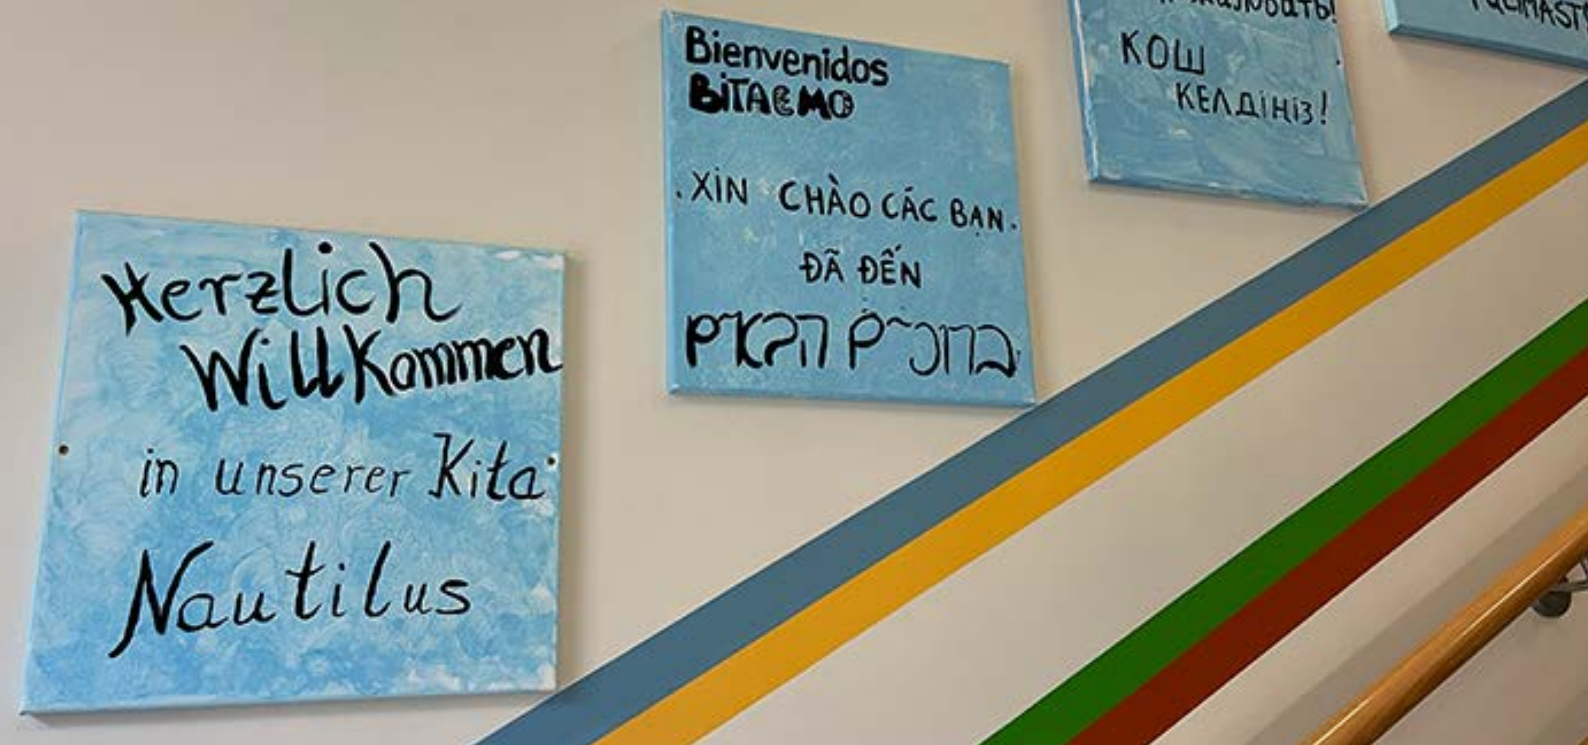 Herzlich
Willkommen
in unserer Kita
Nautilus
Bienvenidos
ВІТАЄМО
.XIN CHÀO CÁC BẠN.
ĐÃ ĐẾN
ברוכים הבאים
КОШ
КЕЛДІҢІЗ!